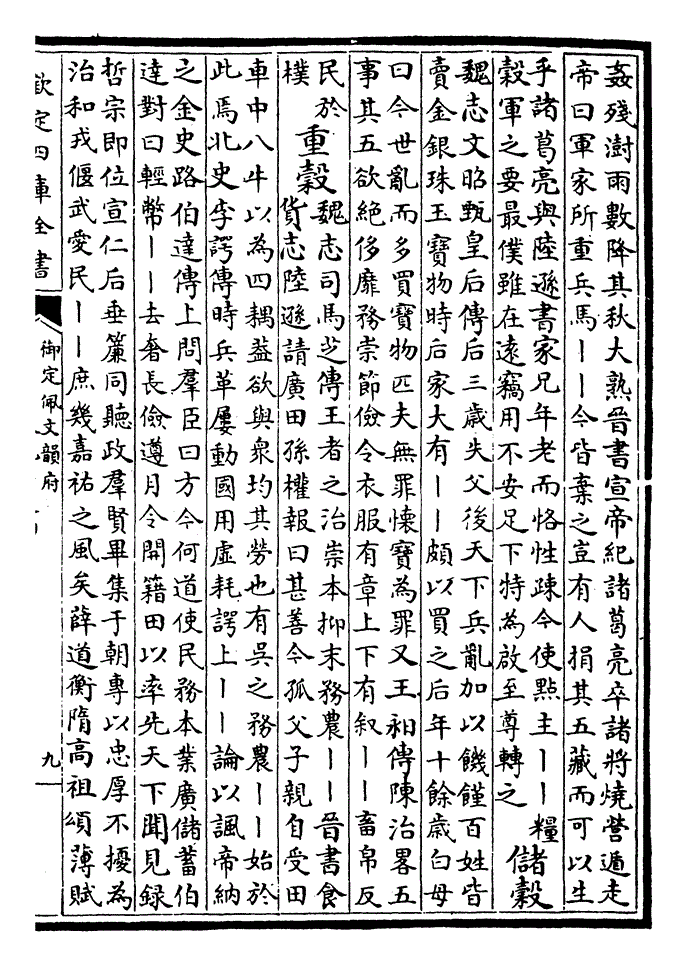 姦殘澍雨數降其秋大熟晉書宣帝紀諸葛亮卒諸將燒營遁走
帝曰軍家所重兵馬丨丨今皆棄之豈有人捐其五藏而可以生
乎諸葛亮與陸遜書家兄年老而恪性疎今使㸃主丨丨糧
穀軍之要最僕雖在遠竊用不安足下特為啟至尊轉之
儲穀
魏志文昭甄皇后傳后三歲失父後天下兵亂加以饑饉百姓皆
賣金銀珠玉寶物時后家大有丨丨頗以買之后年十餘歲白母
曰今世亂而多買寶物匹夫無罪懷寶為罪又王昶傳陳治畧五
事其五欲絶侈靡務崇節儉令衣服有章上下有叙丨丨畜帛反
民於
樸
重穀
魏志司馬芝傳王者之治崇本抑末務農丨丨晉書食
貨志陸遜請廣田孫權報曰甚善今孤父子親自受田
車中八牛以為四耦葢欲與衆均其勞也有吳之務農丨丨始於
此焉北史李諤傳時兵革屢動國用虛耗諤上丨丨論以諷帝納
之金史路伯達傳上問羣臣曰方今何道使民務本業廣儲蓄伯
達對曰輕幣丨丨去奢長儉遵月令開籍田以率先天下聞見録
哲宗即位宣仁后垂簾同聽政羣賢畢集于朝專以忠厚不擾為
治和戎偃武愛民丨丨庶幾嘉祐之風矣薛道衡隋高祖頌薄賦
欽定四庫全書
御定佩文韻府
九